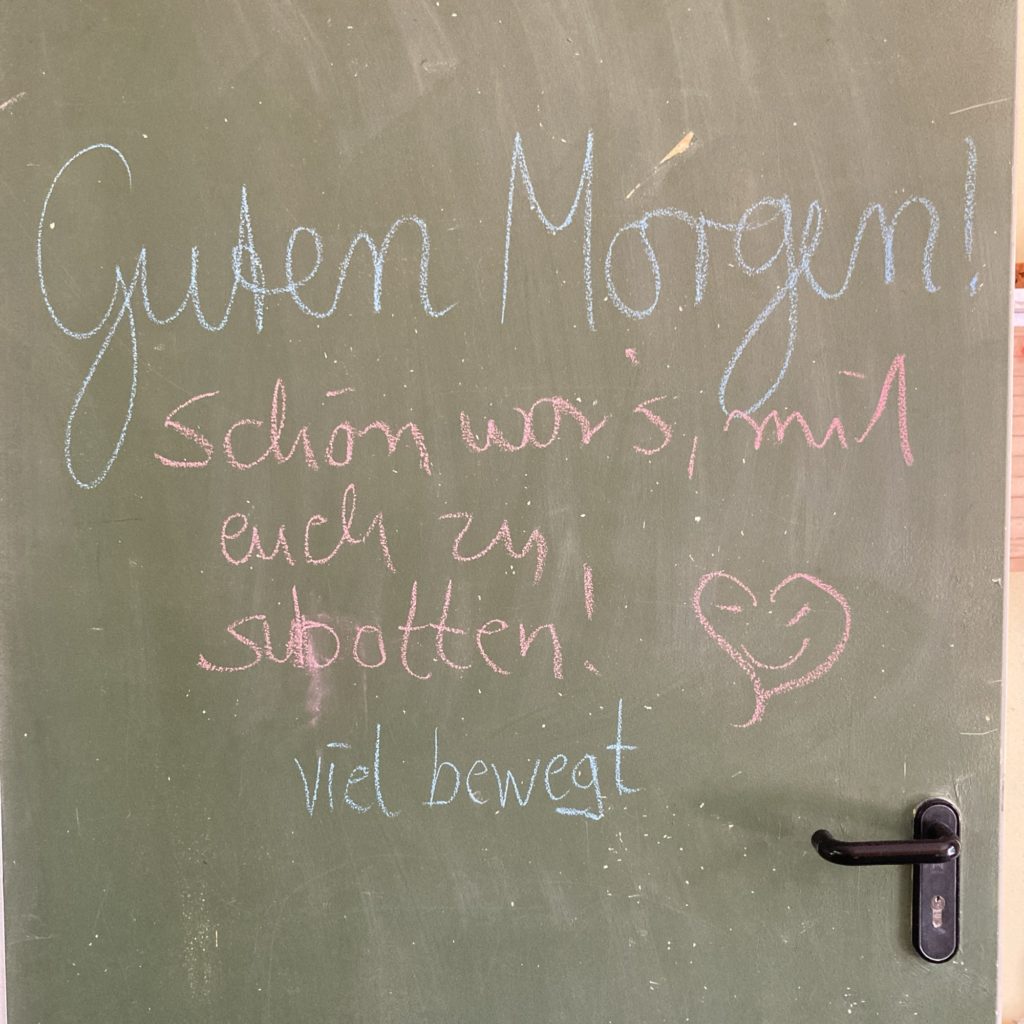 Guten Morgen!
Schön war's, mit
euch zu
spotten!
viel bewegt